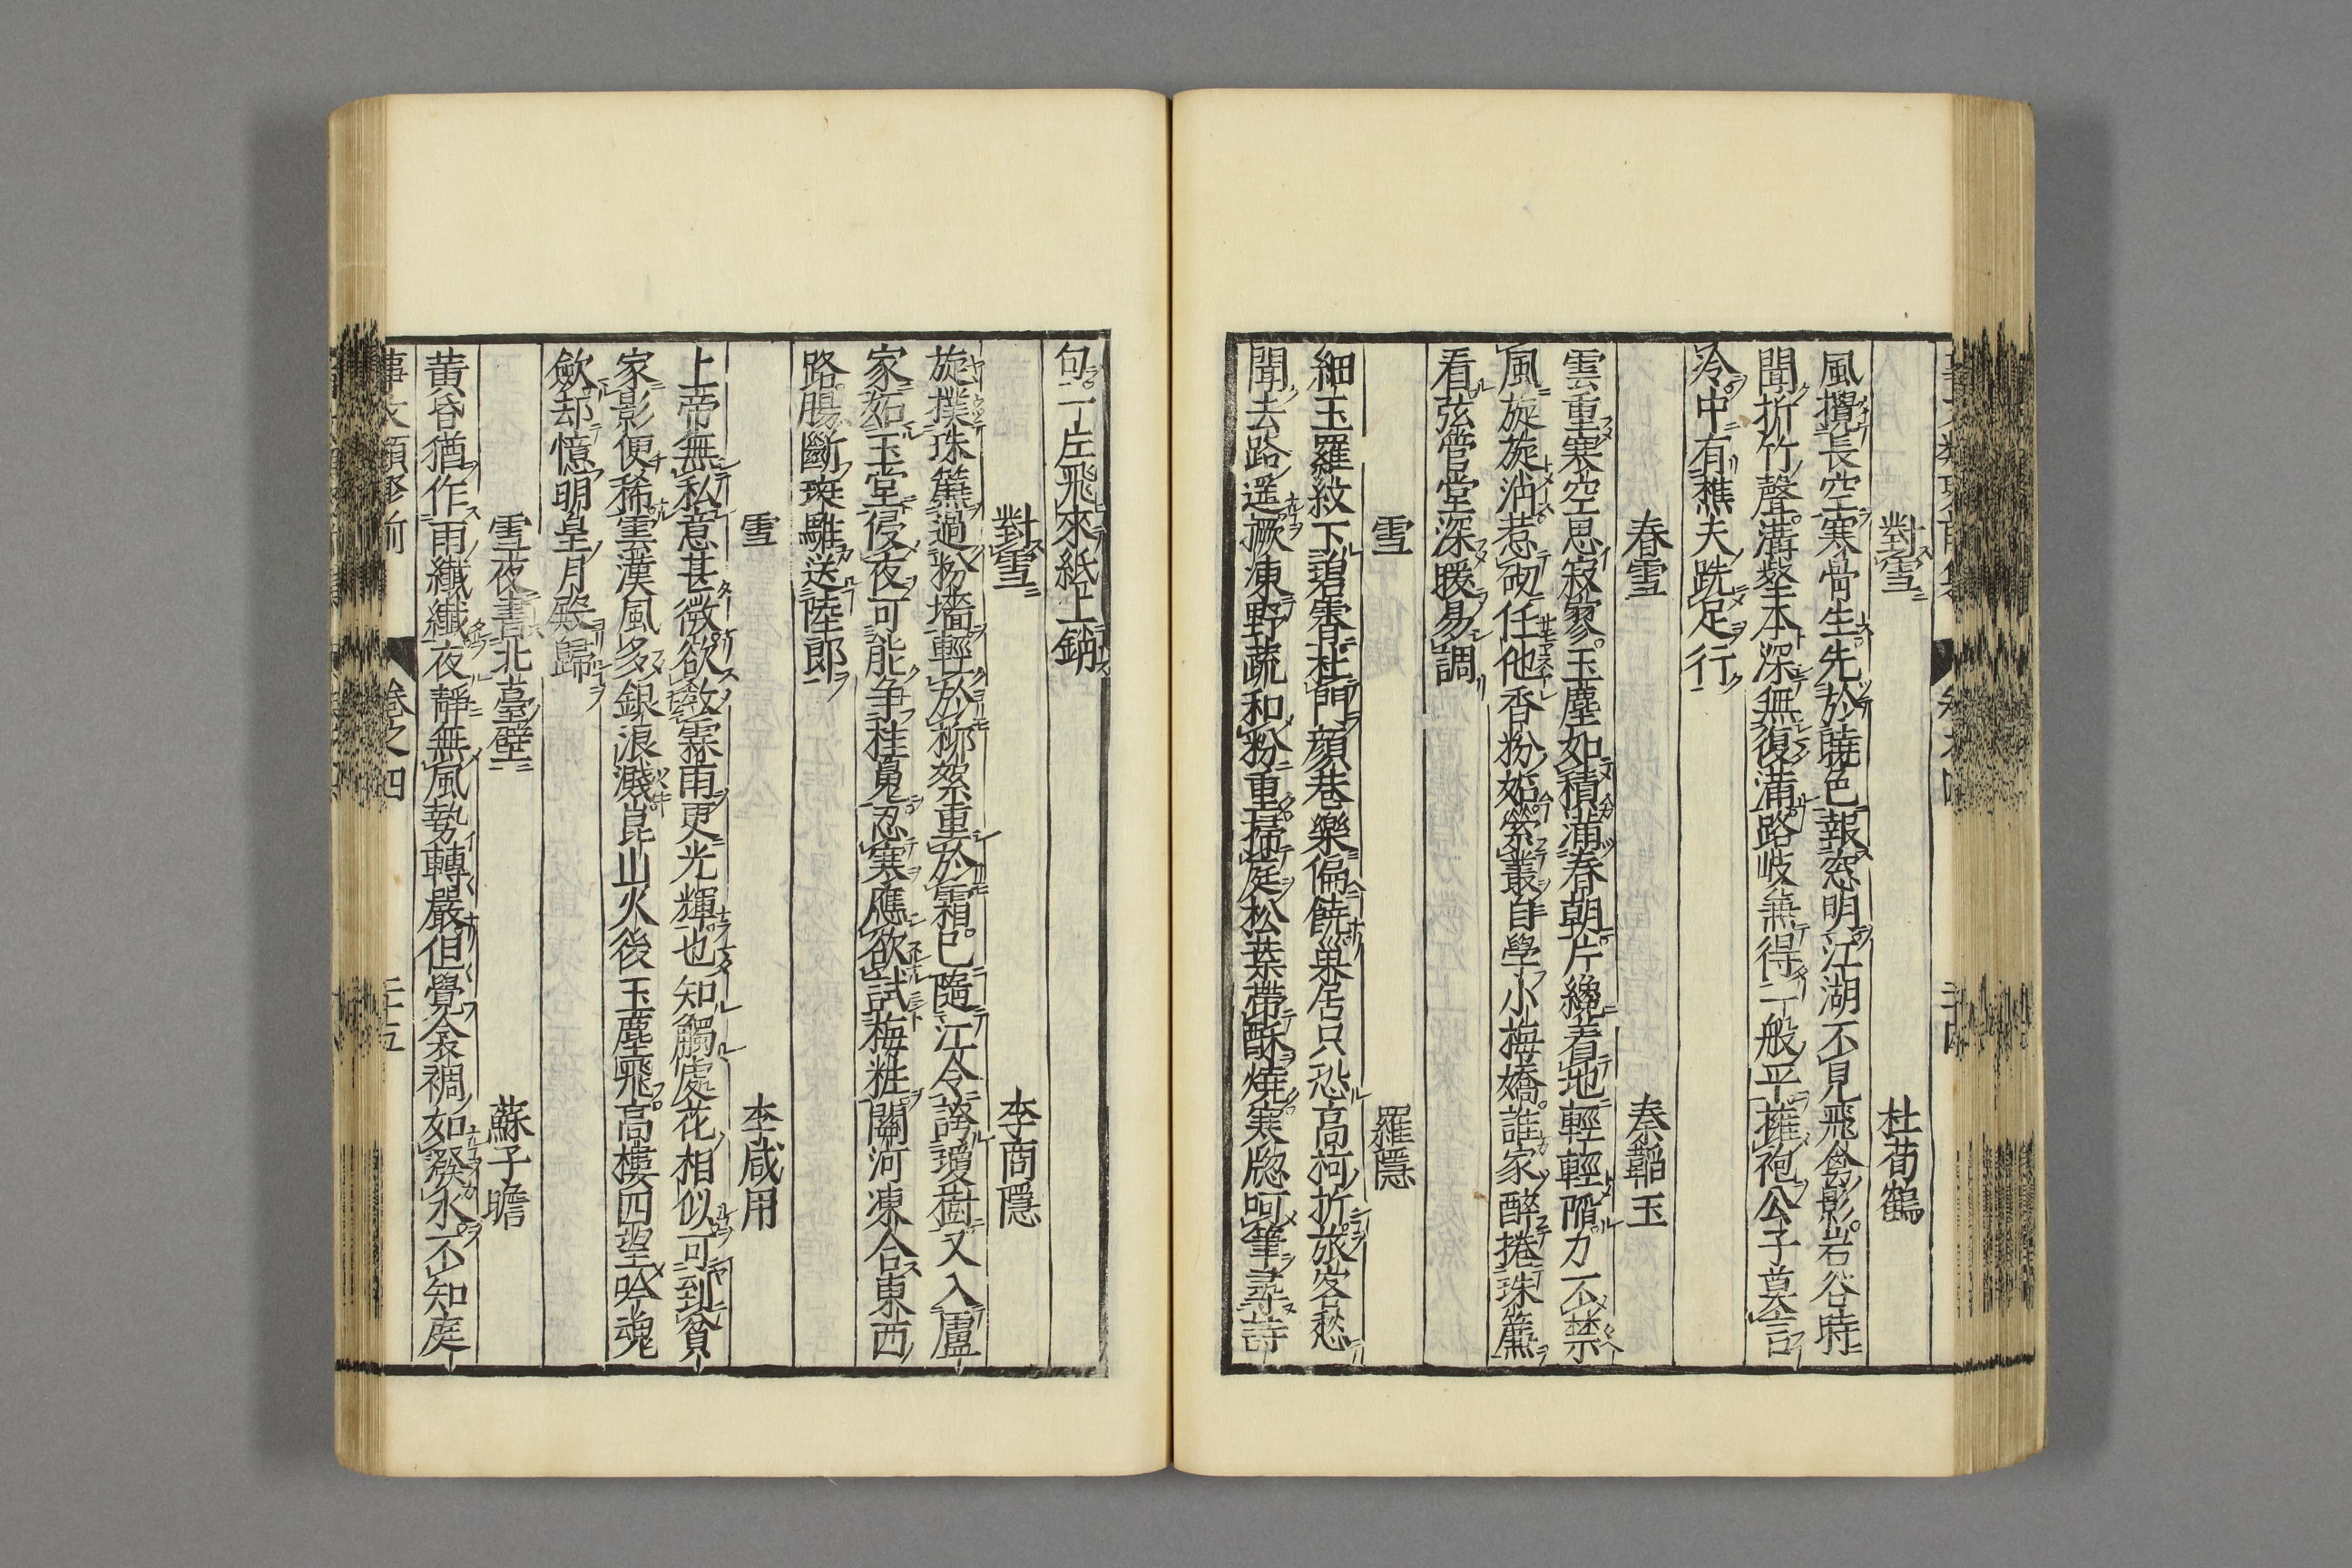 對雪　杜荀鶴
風攪長空寒骨生先於曉色報窓明江湖不見飛禽影岩谷時
聞折竹聲溝壑本深無復滿路岐無得一般平擁袍公子莫言
冷中有樵夫跣足行
春雪　秦韜玉
雲重寒空思寂寥玉塵如積滿春朝片纔着地輕輕陷力不禁
風旋旋消惹砌任他香粉妬縈叢自學小梅嬌誰家醉捲珠簾
看弦管堂深暖易調
雪　羅隱
細玉羅紋下碧霄杜門顔巷樂偏饒巣居只恐高柯折旅客愁
聞去路遥撅凍野蔬和粉重掃庭松葉帶酥燒寒牕呵筆尋詩
句一片飛來紙上銷
對雪　李商隱
旋撲珠簾過粉墻輕於柳絮重於霜已隨江令誇瓊樹又入盧
家妬玉堂侵夜可能争桂魄忍寒應欲試梅粧關河凍合東西
路腸斷斑騅送陸郎
雪　李咸用
上帝無私意甚微欲教霖雨更光輝也知觸處花相似可到貧
家影便稀雲漢風多銀浪濺崑山火後玉塵飛高樓四望吟魂
歛却憶明皇月殿歸
雪夜書北臺壁　蘇子瞻
黃昏猶作雨纖纖夜靜無風勢轉嚴但覺衾裯如潑水不知庭
卷之四